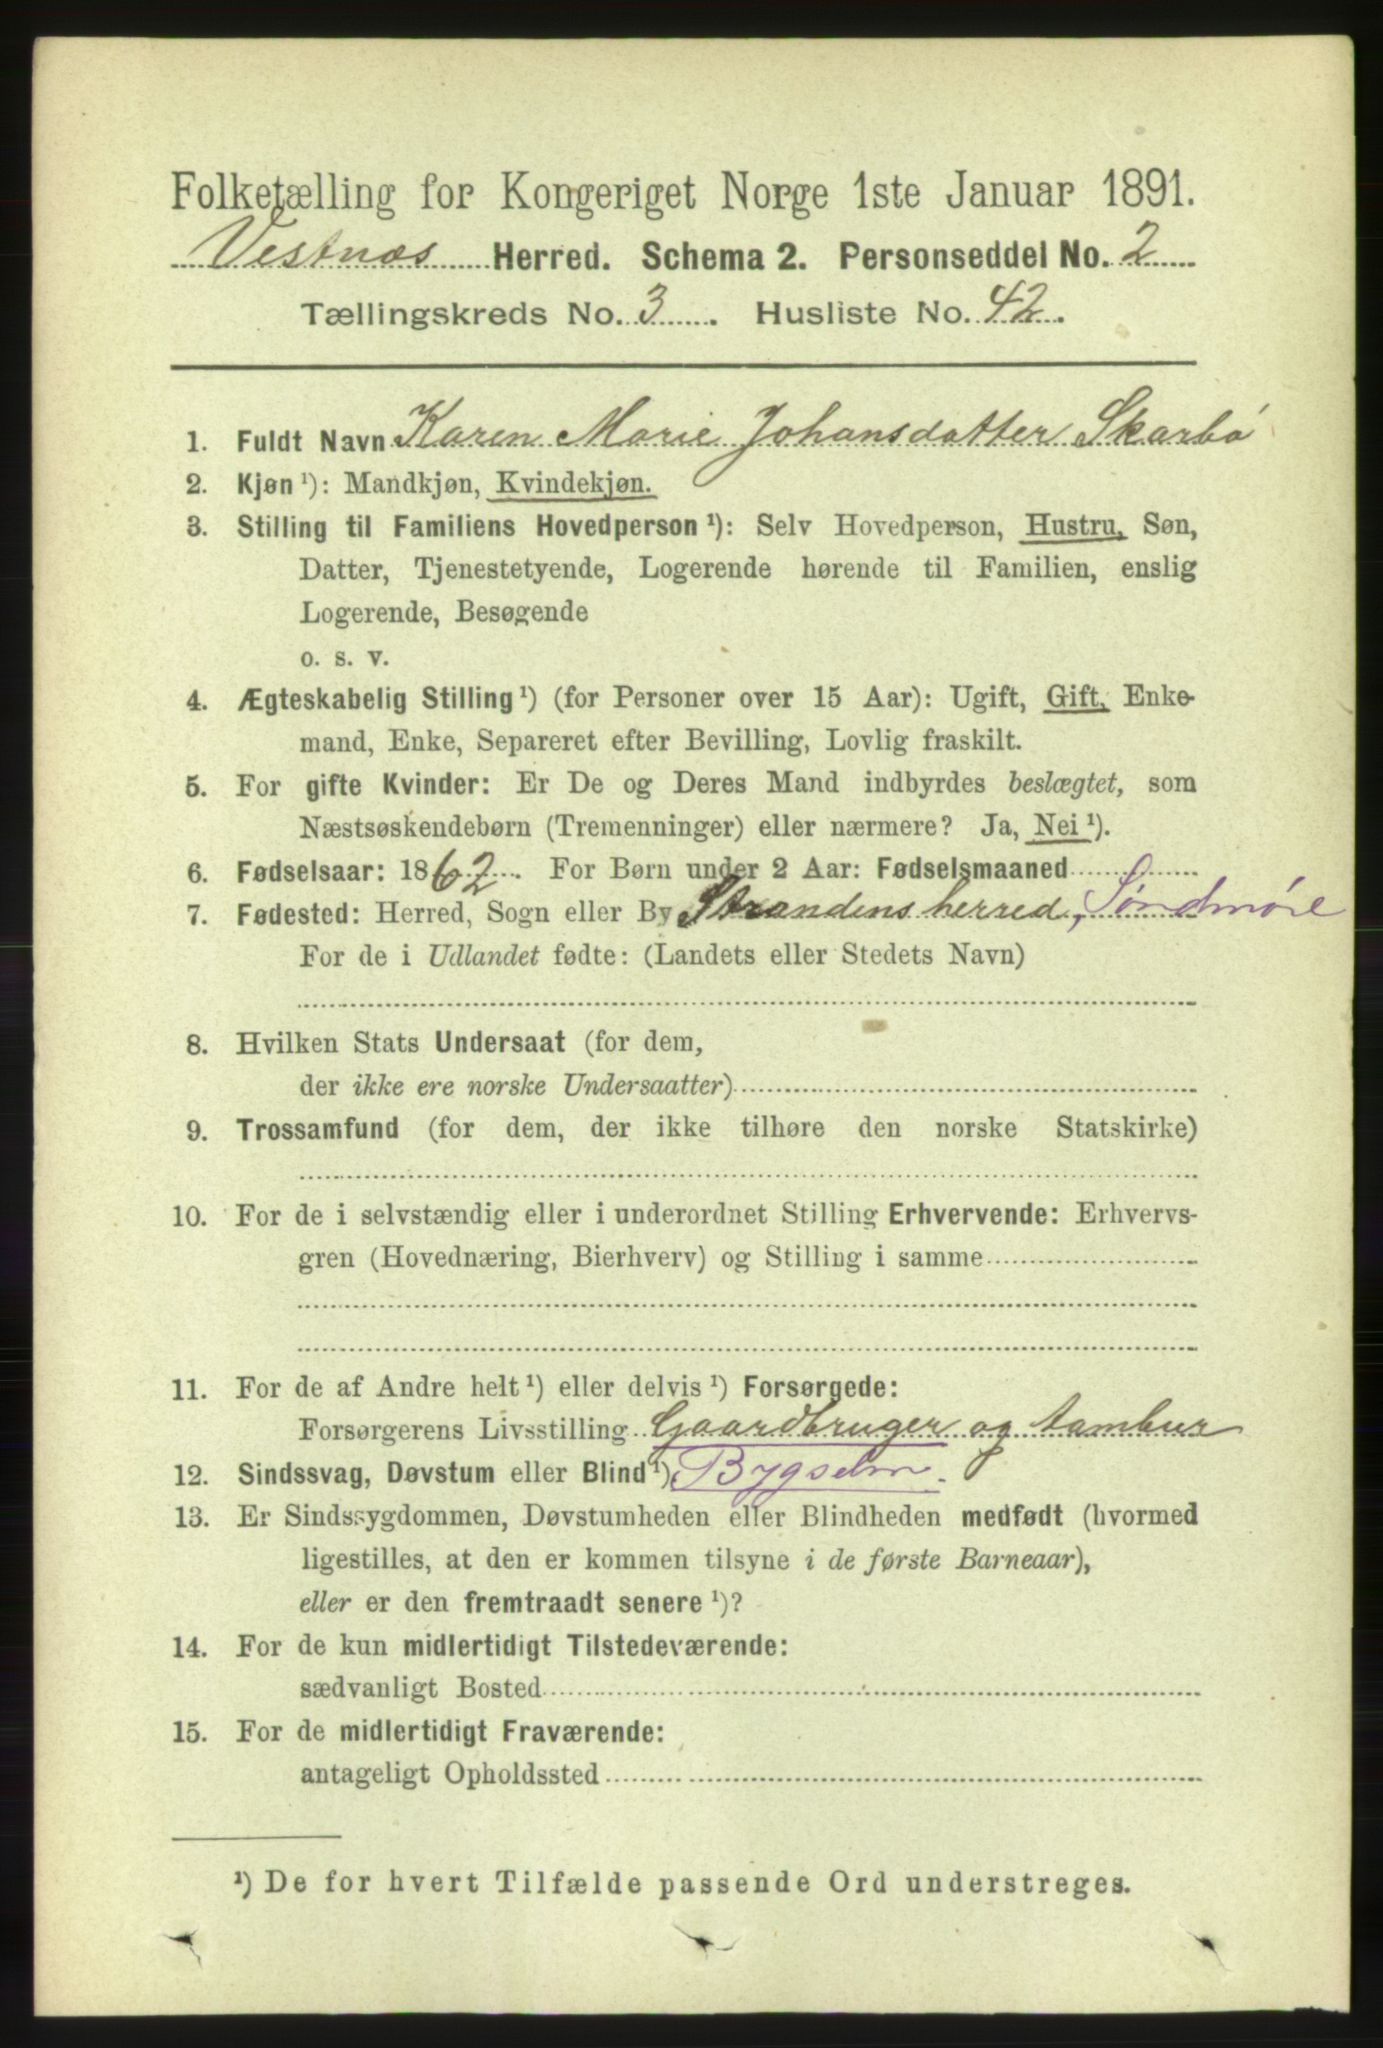 Folketælling for Kongeriget Norge 1ste Januar 1891.
Vestnæs Herred. Schema 2. Personseddel No. 2
Tællingskreds No. 3. Husliste No. 42.
1. Fuldt Navn Karen Marie Johansdatter Skarbø
2. Kjøn ¹): Mandkjøn, Kvindekjøn.
3. Stilling til Familiens Hovedperson ¹): Selv Hovedperson, Hustru, Søn,
Datter, Tjenestetyende, Logerende hørende til Familien, enslig
Logerende, Besøgende
o. s. v.
4. Ægteskabelig Stilling ¹) (for Personer over 15 Aar): Ugift, Gift, Enke-
mand, Enke, Separeret efter Bevilling, Lovlig fraskilt.
5. For gifte Kvinder: Er De og Deres Mand indbyrdes beslægtet, som
Næstsøskendebørn (Tremenninger) eller nærmere? Ja, Nei ¹).
6. Fødselsaar: 1862. For Børn under 2 Aar: Fødselsmaaned
7. Fødested: Herred, Sogn eller By Strandens herred, Søndmøre
For de i Udlandet fødte: (Landets eller Stedets Navn)
8. Hvilken Stats Undersaat (for dem,
der ikke ere norske Undersaatter)
9. Trossamfund (for dem, der ikke tilhøre den norske Statskirke)
10. For de i selvstændig eller i underordnet Stilling Erhvervende: Erhvervs-
gren (Hovednæring, Bierhverv) og Stilling i samme
11. For de af Andre helt ¹) eller delvis ¹) Forsørgede:
Forsørgerens Livsstilling Gaardbruger og
12. Sindssvag, Døvstum eller Blind ¹). Bygselm.
13. Er Sindssygdommen, Døvstumheden eller Blindheden medfødt (hvormed
ligestilles, at den er kommen tilsyne i de første Barneaar),
eller er den fremtraadt senere ¹)?
14. For de kun midlertidigt Tilstedeværende:
sædvanligt Bosted
15. For de midlertidigt Fraværende:
antageligt Opholdssted
¹) De for hvert Tilfælde passende Ord understreges.